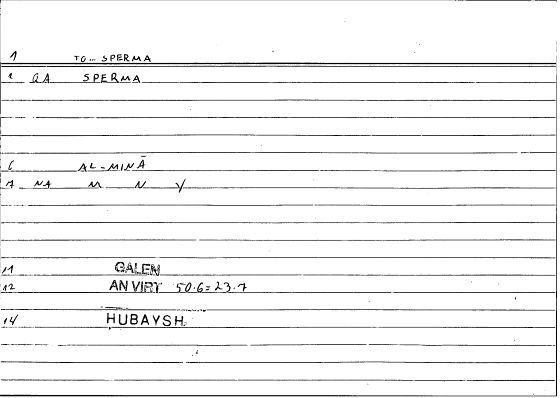 1 TO... SPERMA
2 GA SPERMA
6 AL-MINĀ
7 NA M N Y
11 GALEN
12 AN VIRT 50.6=23.7
14 HUBAYSH